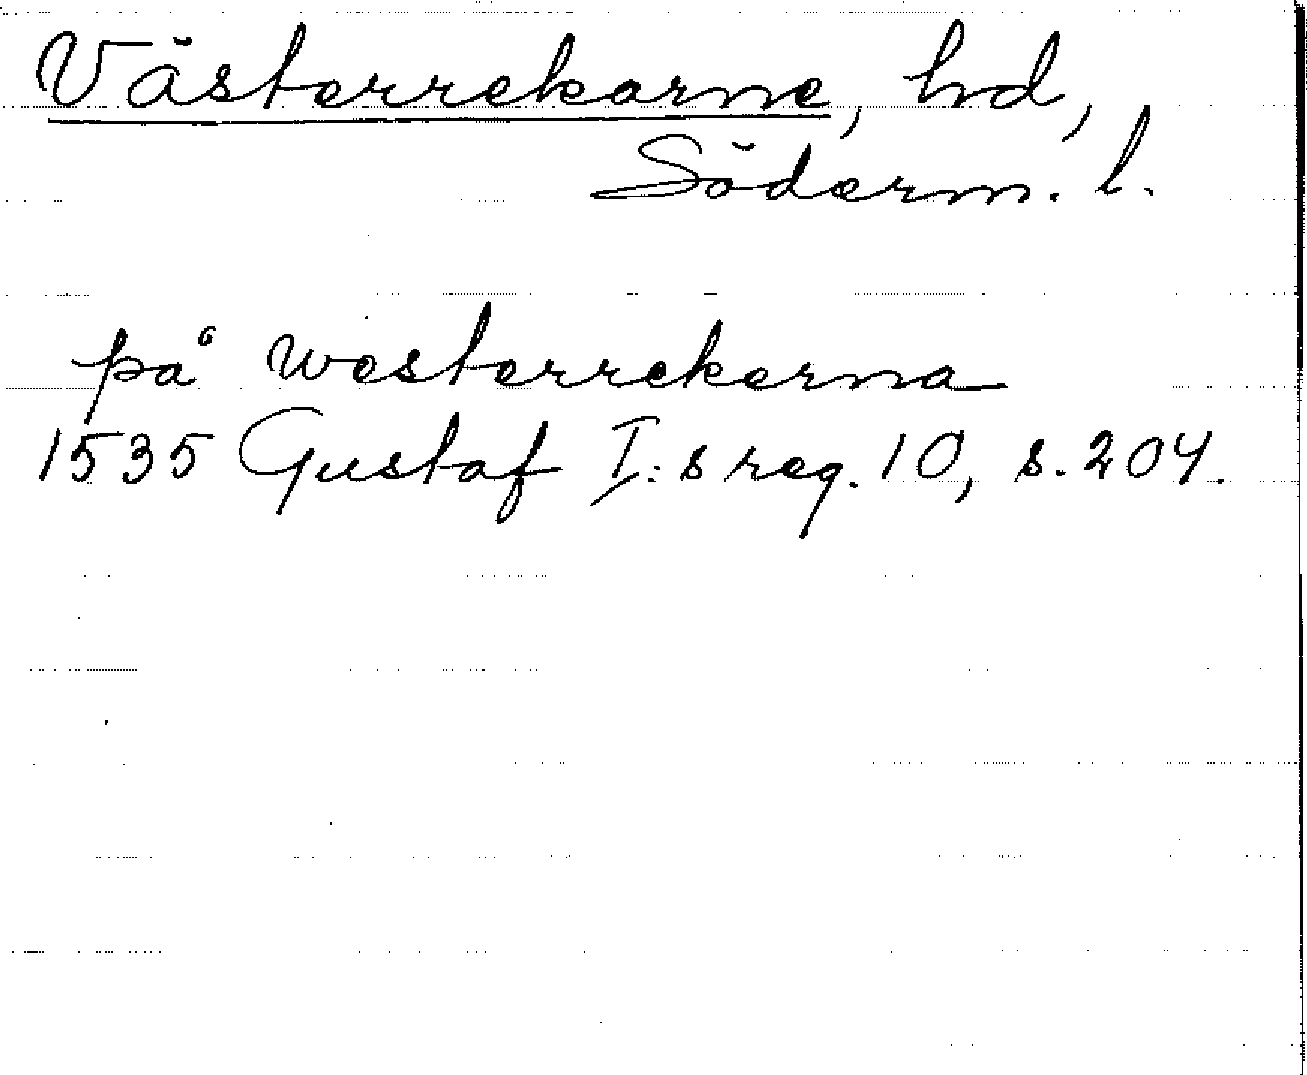 Västerrekarne, hd,
Söderm. l.
på Westerrekerna
1535 Gustaf I:s reg. 10, s. 204.